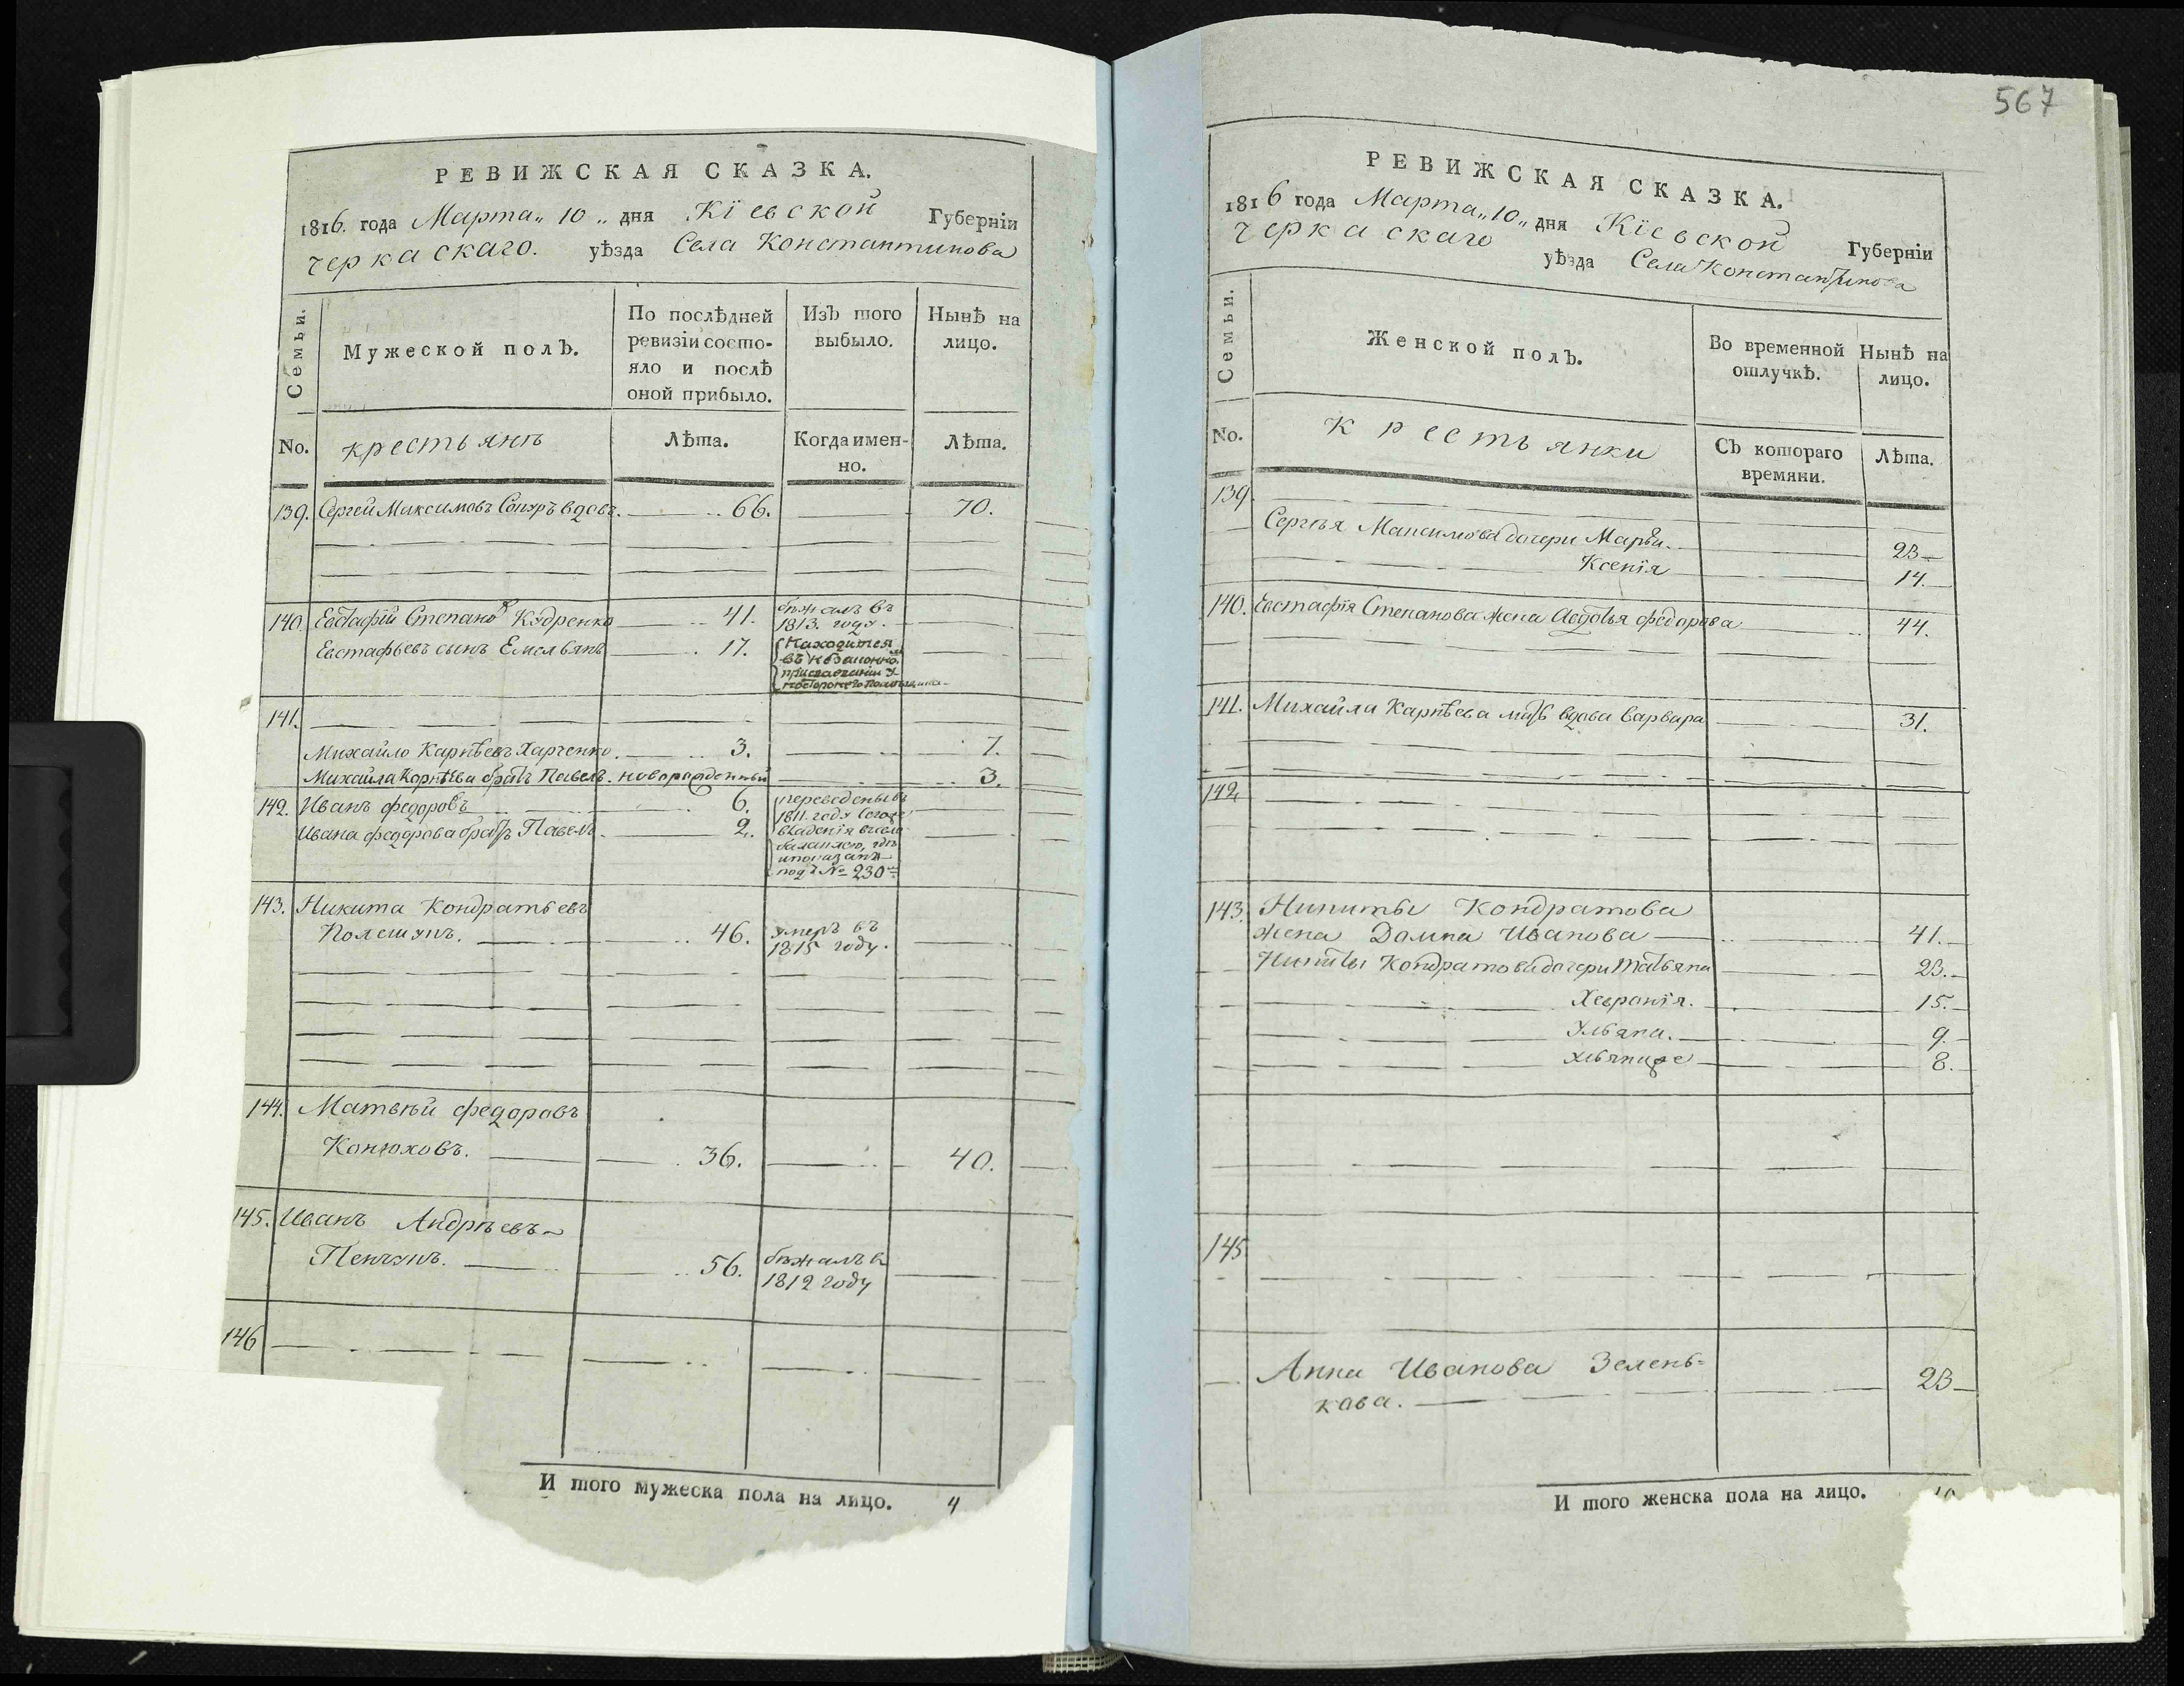 РЕВИЖСКАЯ СКАЗКА.
1816. года Марта „ 10 „ дня Кіевской Губерніи
Черкаскаго. уѣзда Села Константинова
Семьи.
Мужеской полъ.
По послѣдней ревизіи состо-
яло и послѣ
оной прибыло.
Изъ того
выбыло.
Нынѣ на
лицо.
No.
крестьянъ
Лѣта.
Когда имен-
но.
Лѣта.
139. Сергей Максимовъ вдовъ. 66. 70.
140. Евстафій Степановъ Кудренко 41. бѣжалъ въ
1813. году.
Евстафьевъ сынъ Емельянъ 17. Находится
въ
141.
Михайло Карнѣевъ Харченко. 3. 7.
Михайла Корнѣева братъ Павелъ. новорожденный 3.
142. Иванъ федоровъ 6. переведены въ
1811. году
Ивана федорова братъ Павелъ. 2. владенія
показаны
подъ № 230
143. Никита Кондратьевъ
46. умеръ въ
1815 году.
144. Матвѣй федоровъ
Конюховъ. 36. 40.
145. Иванъ Андрѣевъ
56. бѣжалъ в
1812 году
146
И того мужеска пола на лицо. 4
567
РЕВИЖСКАЯ СКАЗКА.
1816 года Марта „ 10 „ дня Кіевской Губерніи
Черкаскаго уѣзда Села Константинова
Семьи.
Женской полъ.
Во временной
отлучкѣ.
Нынѣ на
лицо.
No.
Крестьянки
Съ котораго
времяни.
Лѣта.
139.
Сергѣя Максимова дочери Марья. 23
Ксенія 14.
140. Евстафія Степанова жена Авдотья федорова 44.
141. Михайла Карнѣева мать вдова Варвара 31.
142
143. Никиты Кондратова
жена Домна Иванова 41.
Никиты Кондратова дочери Татьяна 23.
Хевронія. 15.
Ульяна. 9.
8.
145
Анна Иванова Зелень-
кова. 23
И того женска пола на лицо. 10